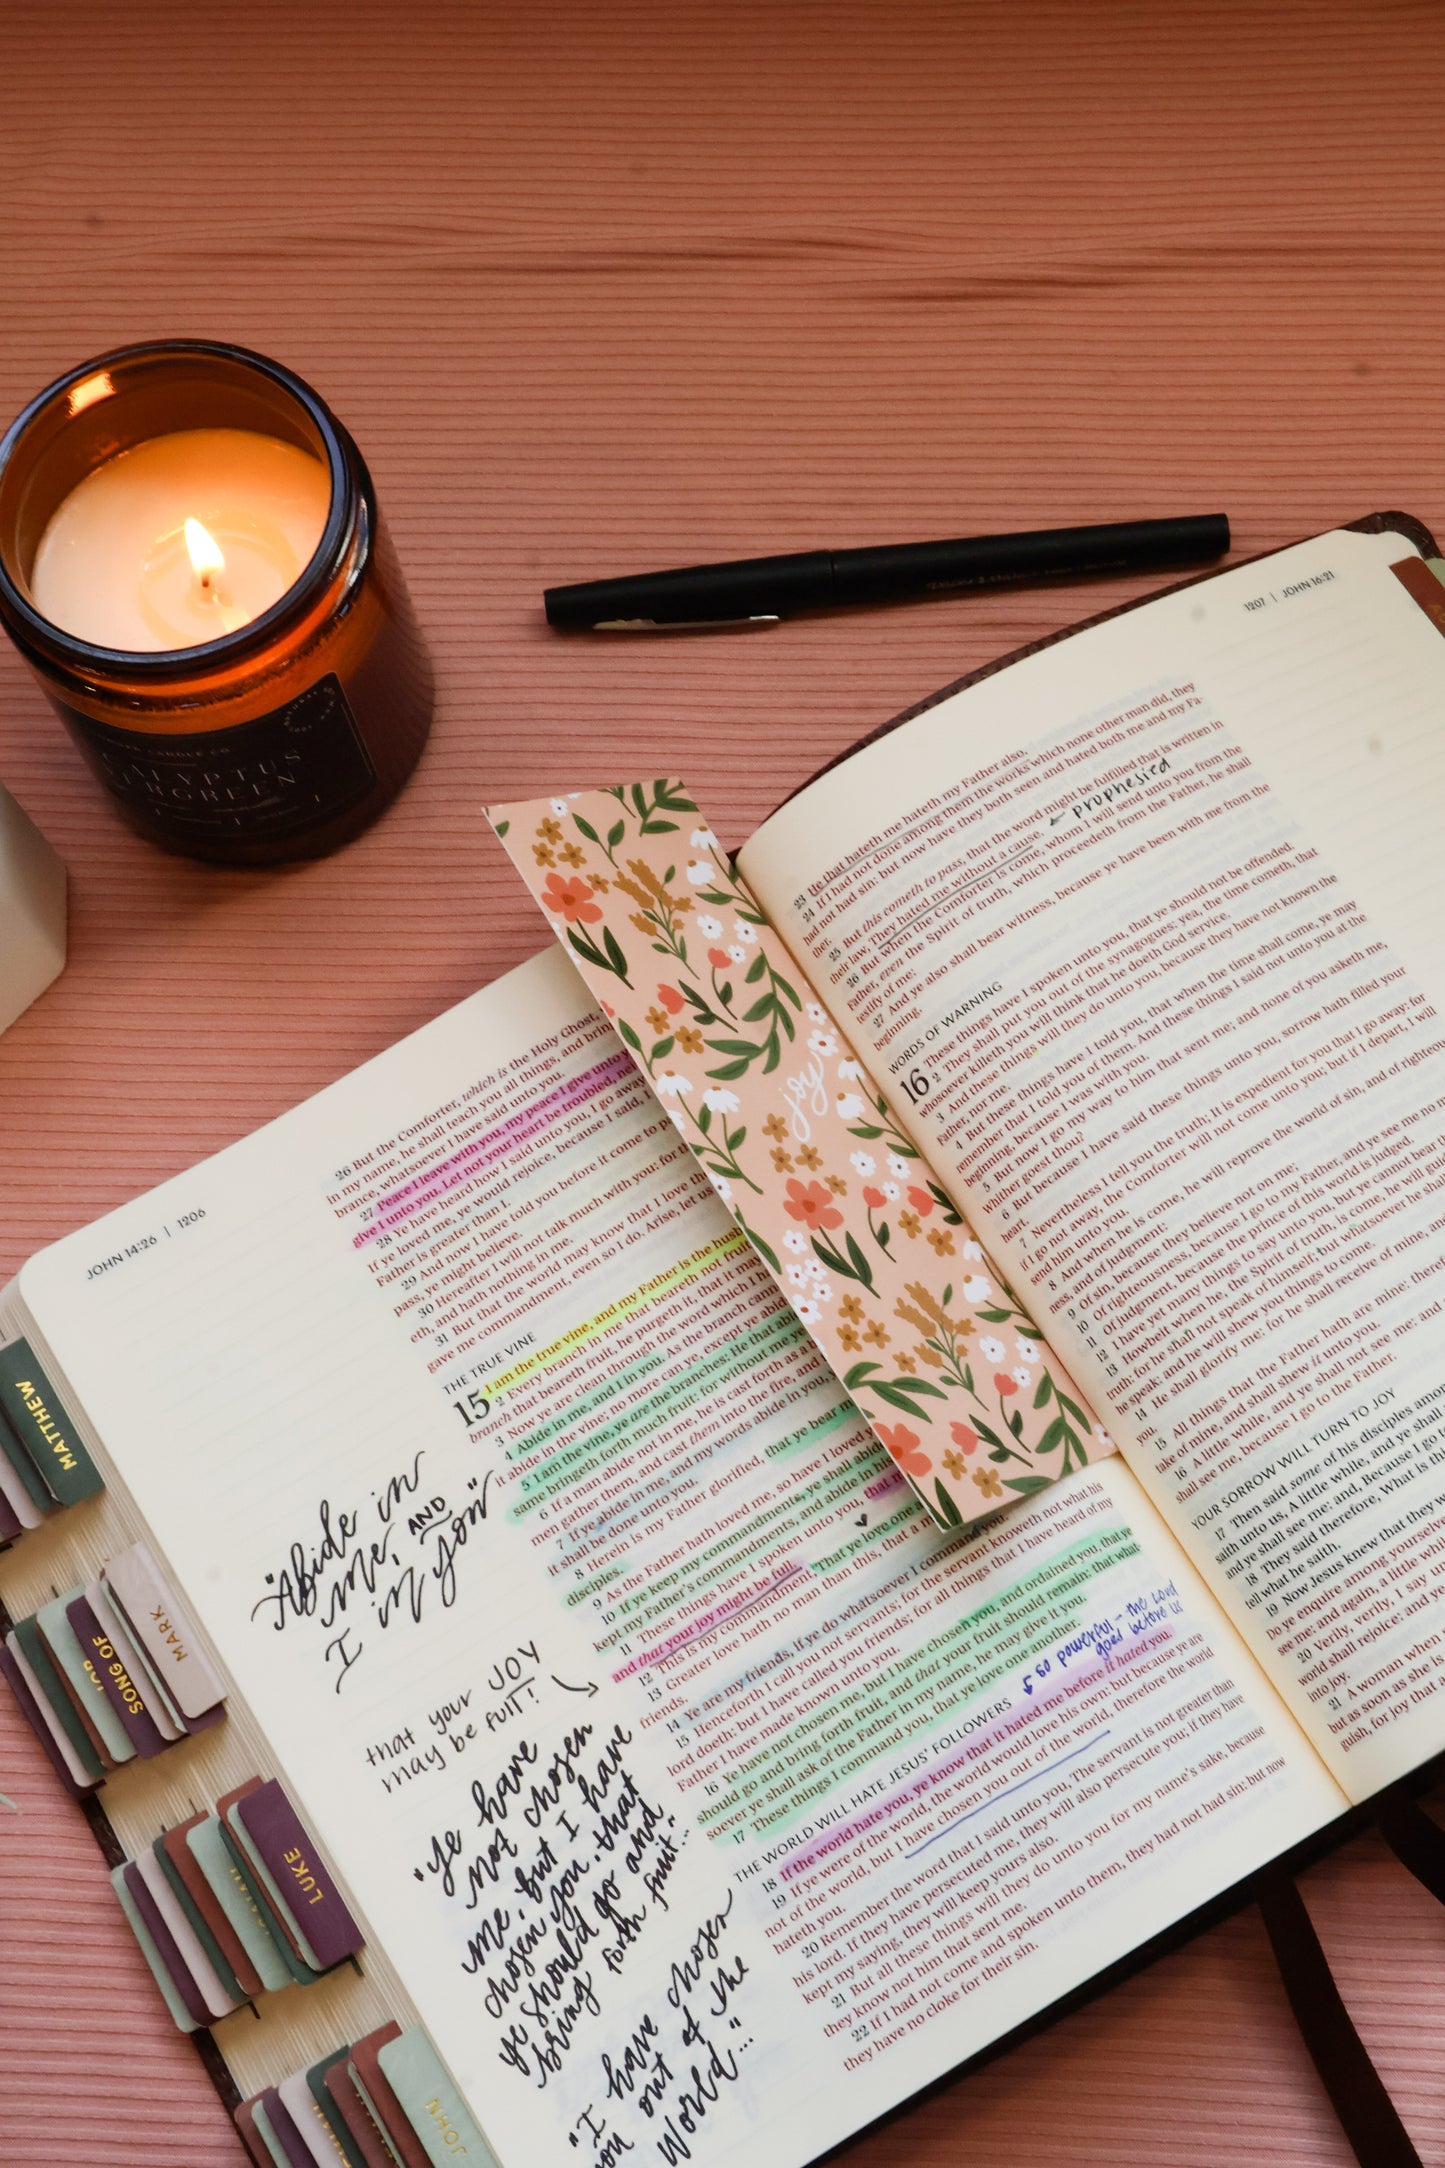 CANDLE CO.
EVERGREEN
joy
MATTHEW
MARK
SONG OF
LUKE
JOHN
JOHN 14:26 | 1206
26 But the Comforter, which is the Holy Ghost,
in my name, he shall teach you all things, and
brance, whatsoever I have said unto you.
27 Peace I leave with you, my peace I give unto
give I unto you. Let not your heart be troubled,
28 Ye have heard how I said unto you, I go away
ye loved me, ye would rejoice, because I said, I
Father is greater than I.
29 And now I have told you before it come to
pass, ye might believe.
30 Hereafter I will not talk much with you: for
eth, and hath nothing in me.
31 But that the world may know that I love
gave me commandment, even so I do. Arise, let us
THE TRUE VINE
15 I am the true vine, and my Father is the
2 Every branch in me that beareth not
branch that beareth fruit, he purgeth it, that it may
3 Now ye are clean through the word which I
4 Abide in me, and I in you. As the branch
it abide in the vine; no more can ye, except ye
5 I am the vine, ye are the branches: He that
same bringeth forth much fruit: for without me ye
6 If a man abide not in me, he is cast forth as a
men gather them, and cast them into the fire, and
7 If ye abide in me, and my words abide in you,
it shall be done unto you.
8 Herein is my Father glorified, that ye bear
disciples.
9 As the Father hath loved me, so have I loved
10 If ye keep my commandments, ye shall abide
kept my Father's commandments, and abide in his
11 These things have I spoken unto you, that
and that your joy might be full.
12 This is my commandment, That ye love one
13 Greater love hath no man than this, that a
friends.
14 Ye are my friends, if ye do whatsoever I command you.
15 Henceforth I call you not servants; for the servant knoweth not what his
lord doeth: but I have called you friends; for all things that I have heard of my
Father I have made known unto you.
16 Ye have not chosen me, but I have chosen you, and ordained you, that ye
should go and bring forth fruit, and that your fruit should remain: that what-
soever ye shall ask of the Father in my name, he may give it you.
17 These things I command you, that ye love one another.
THE WORLD WILL HATE JESUS' FOLLOWERS
so powerful - the Lord
goes before us
18 If the world hate you, ye know that it hated me before it hated you.
19 If ye were of the world, the world would love his own: but because ye are
not of the world, but I have chosen you out of the world, therefore the world
hateth you.
20 Remember the word that I said unto you, The servant is not greater than
his lord. If they have persecuted me, they will also persecute you; if they have
kept my saying, they will keep yours also.
21 But all these things will they do unto you for my name's sake, because
they know not him that sent me.
22 If I had not come and spoken unto them, they had not had sin: but now
they have no cloke for their sin.
"Abide in
me, AND
I in you"
that your JOY
may be full!
"Ye have
not chosen
me, but I have
chosen you, that
ye should go and
bring forth fruit..."
"I have chosen
you out of the
World..."
1207 | JOHN 16:21
23 He that hateth me hateth my Father also.
24 If I had not done among them the works which none other man did, they
had not had sin: but now have they both seen and hated both me and my Fa-
ther.
25 But this cometh to pass, that the word might be fulfilled that is written in
their law, They hated me without a cause.
prophesied
26 But when the Comforter is come, whom I will send unto you from the
Father, even the Spirit of truth, which proceedeth from the Father, he shall
testify of me:
27 And ye also shall bear witness, because ye have been with me from the
beginning.
WORDS OF WARNING
16 These things have I spoken unto you, that ye should not be offended.
2 They shall put you out of the synagogues: yea, the time cometh, that
whosoever killeth you will think that he doeth God service.
3 And these things will they do unto you, because they have not known the
Father, nor me.
4 But these things have I told you, that when the time shall come, ye may
remember that I told you of them. And these things I said not unto you at the
beginning, because I was with you.
5 But now I go my way to him that sent me; and none of you asketh me,
whither goest thou?
6 But because I have said these things unto you, sorrow hath filled your
heart.
7 Nevertheless I tell you the truth; It is expedient for you that I go away: for
if I go not away, the Comforter will not come unto you; but if I depart, I will
send him unto you.
8 And when he is come, he will reprove the world of sin, and of
ness, and of judgment:
9 Of sin, because they believe not on me;
10 Of righteousness, because I go to my Father, and ye see me no
11 Of judgment, because the prince of this world is judged.
12 I have yet many things to say unto you, but ye cannot bear
13 Howbeit when he, the Spirit of truth, is come, he will guide
truth: for he shall not speak of himself; but whatsoever he
he speak: and he will shew you things to come.
14 He shall glorify me: for he shall receive of mine, and
you.
15 All things that the Father hath are mine:
take of mine, and shall shew it unto you.
16 A little while, and ye shall not see me: and
shall see me, because I go to the Father.
YOUR SORROW WILL TURN TO JOY
17 Then said some of his disciples
saith unto us, A little while, and ye shall
and ye shall see me: and, Because I go
18 They said therefore, What is
tell what he saith.
19 Now Jesus knew that they
Do ye enquire among yourselves
see me: and again, a little while
20 Verily, verily, I say
world shall rejoice: and ye
into joy.
21 A woman when
but as soon as she is
guish, for joy that a